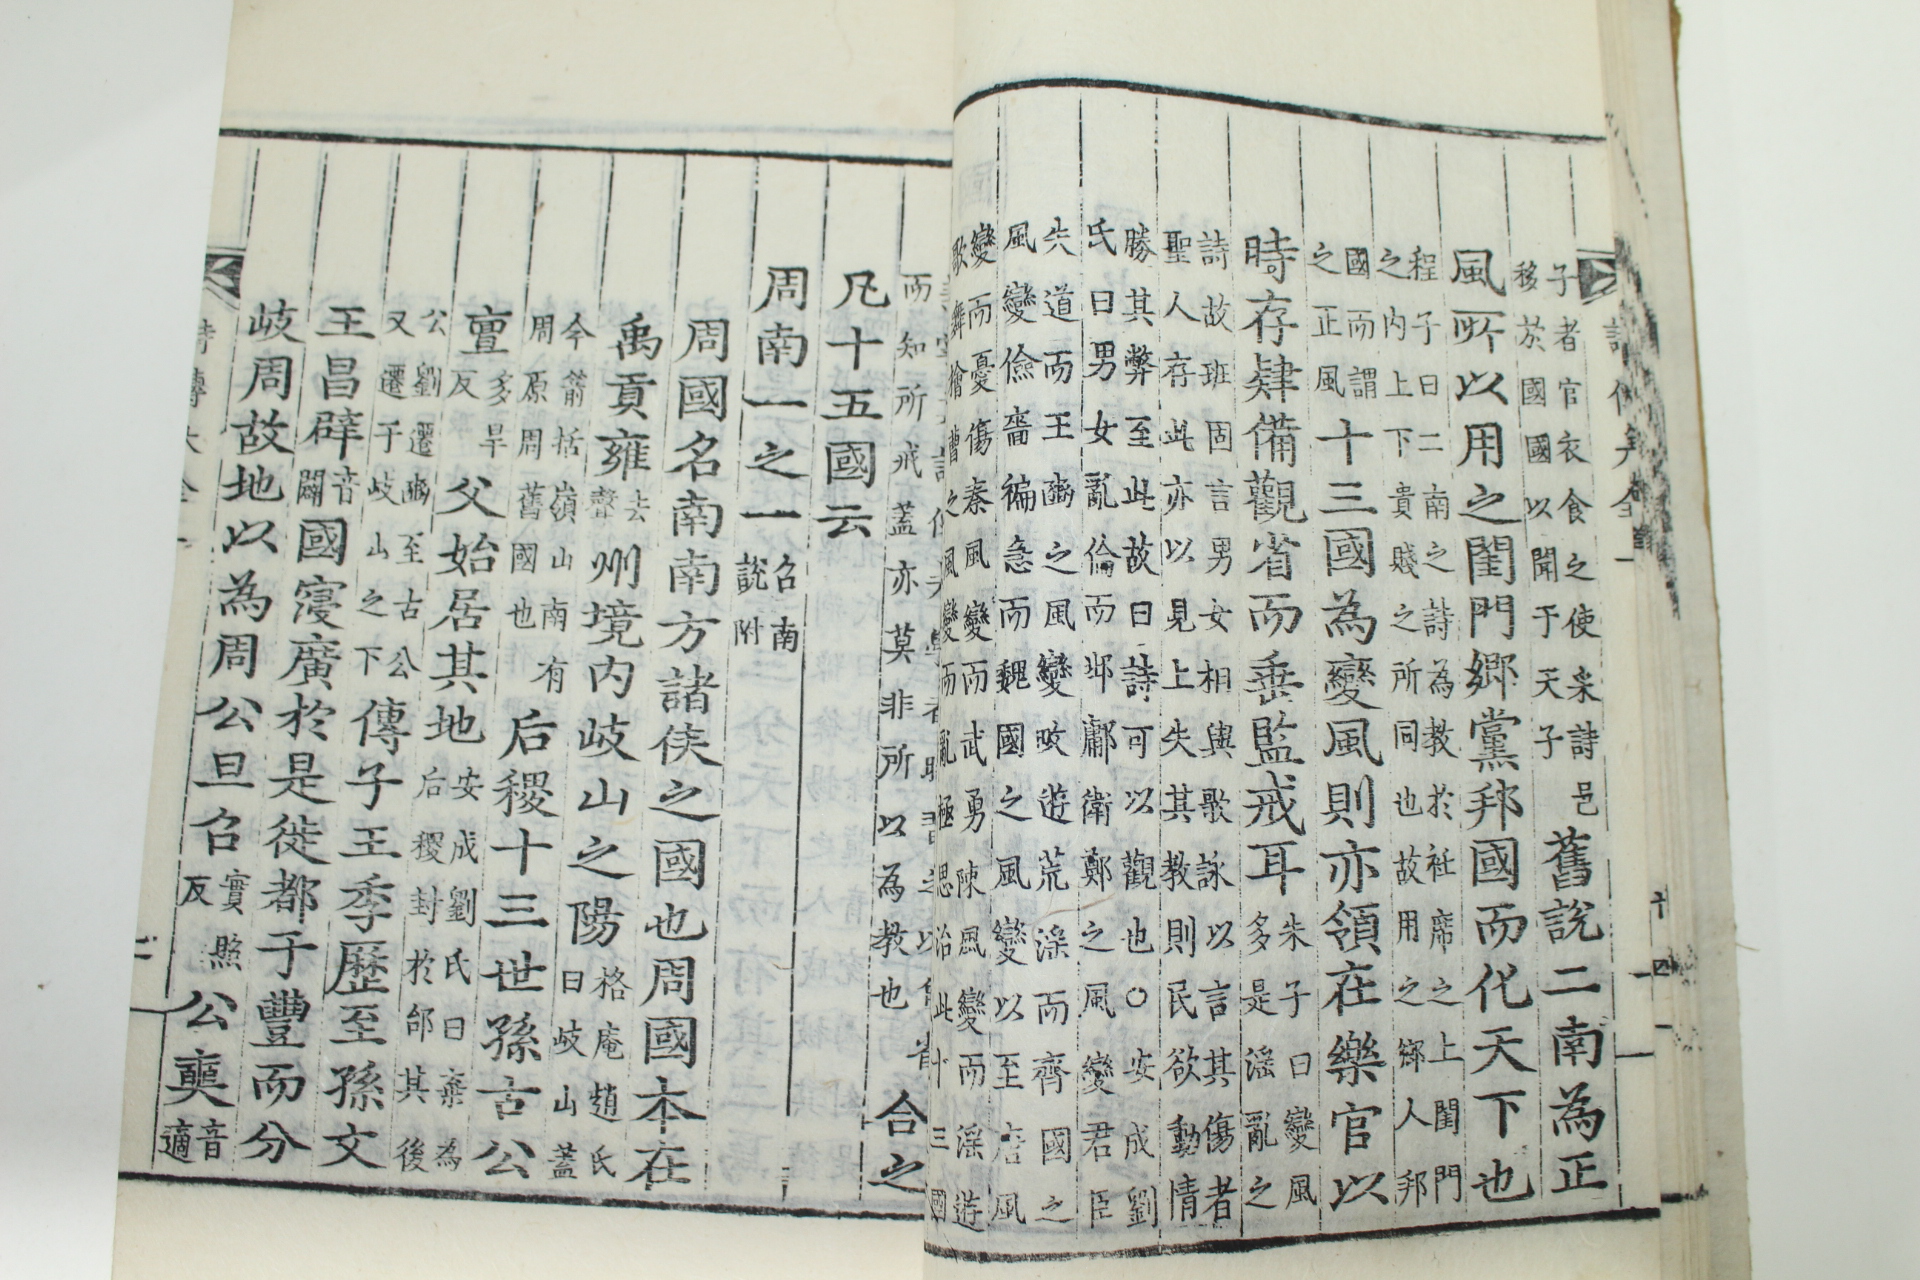 子者官衣食之使采詩邑
移於國國以聞于天子
舊說二南為正
風所以用之閨門鄉黨邦國而化天下也
程子曰二南之詩為教於衽席之上閨門
之內上下貴賤之所同也故用之鄉人邦
國而謂
之正風
十三國為變風則亦領在樂官以
時存肄備觀省而垂監戒耳
朱子曰變風
多是淫亂之
詩故班固言男女相與歌詠以言其傷者
聖人存此亦以見上失其教則民欲動情
勝其弊至此故曰詩可以觀也○安成劉
氏曰男女亂倫而邶鄘衛鄭之風變君臣
失道而王豳之風變畋遊荒淫而齊國之
風變儉嗇褊急而魏國之風變以至唐風
變而憂傷秦風變而武勇陳風變而淫遊
歌舞檜曹之風變而亂極思治此十三國
而知所戒蓋亦莫非所以為教也
合之
凡十五國云
周南一之一
召南
說附
周國名南南方諸侯之國也周國本在
禹貢雍
去
聲
州境內岐山之陽
格庵趙氏
曰岐山蓋
今箭括嶺山南有
周原周舊國也
后稷十三世孫古公
亶
多旱
反
父始居其地
安成劉氏曰棄為
后稷封於邰其後
公劉遷豳至古公
又遷于岐山之下
傳子王季歷至孫文
王昌辟
音
闢
國寖廣於是徙都于豐而分
岐周故地以為周公旦召
實照
反
公奭
音
適
詩傳大全一